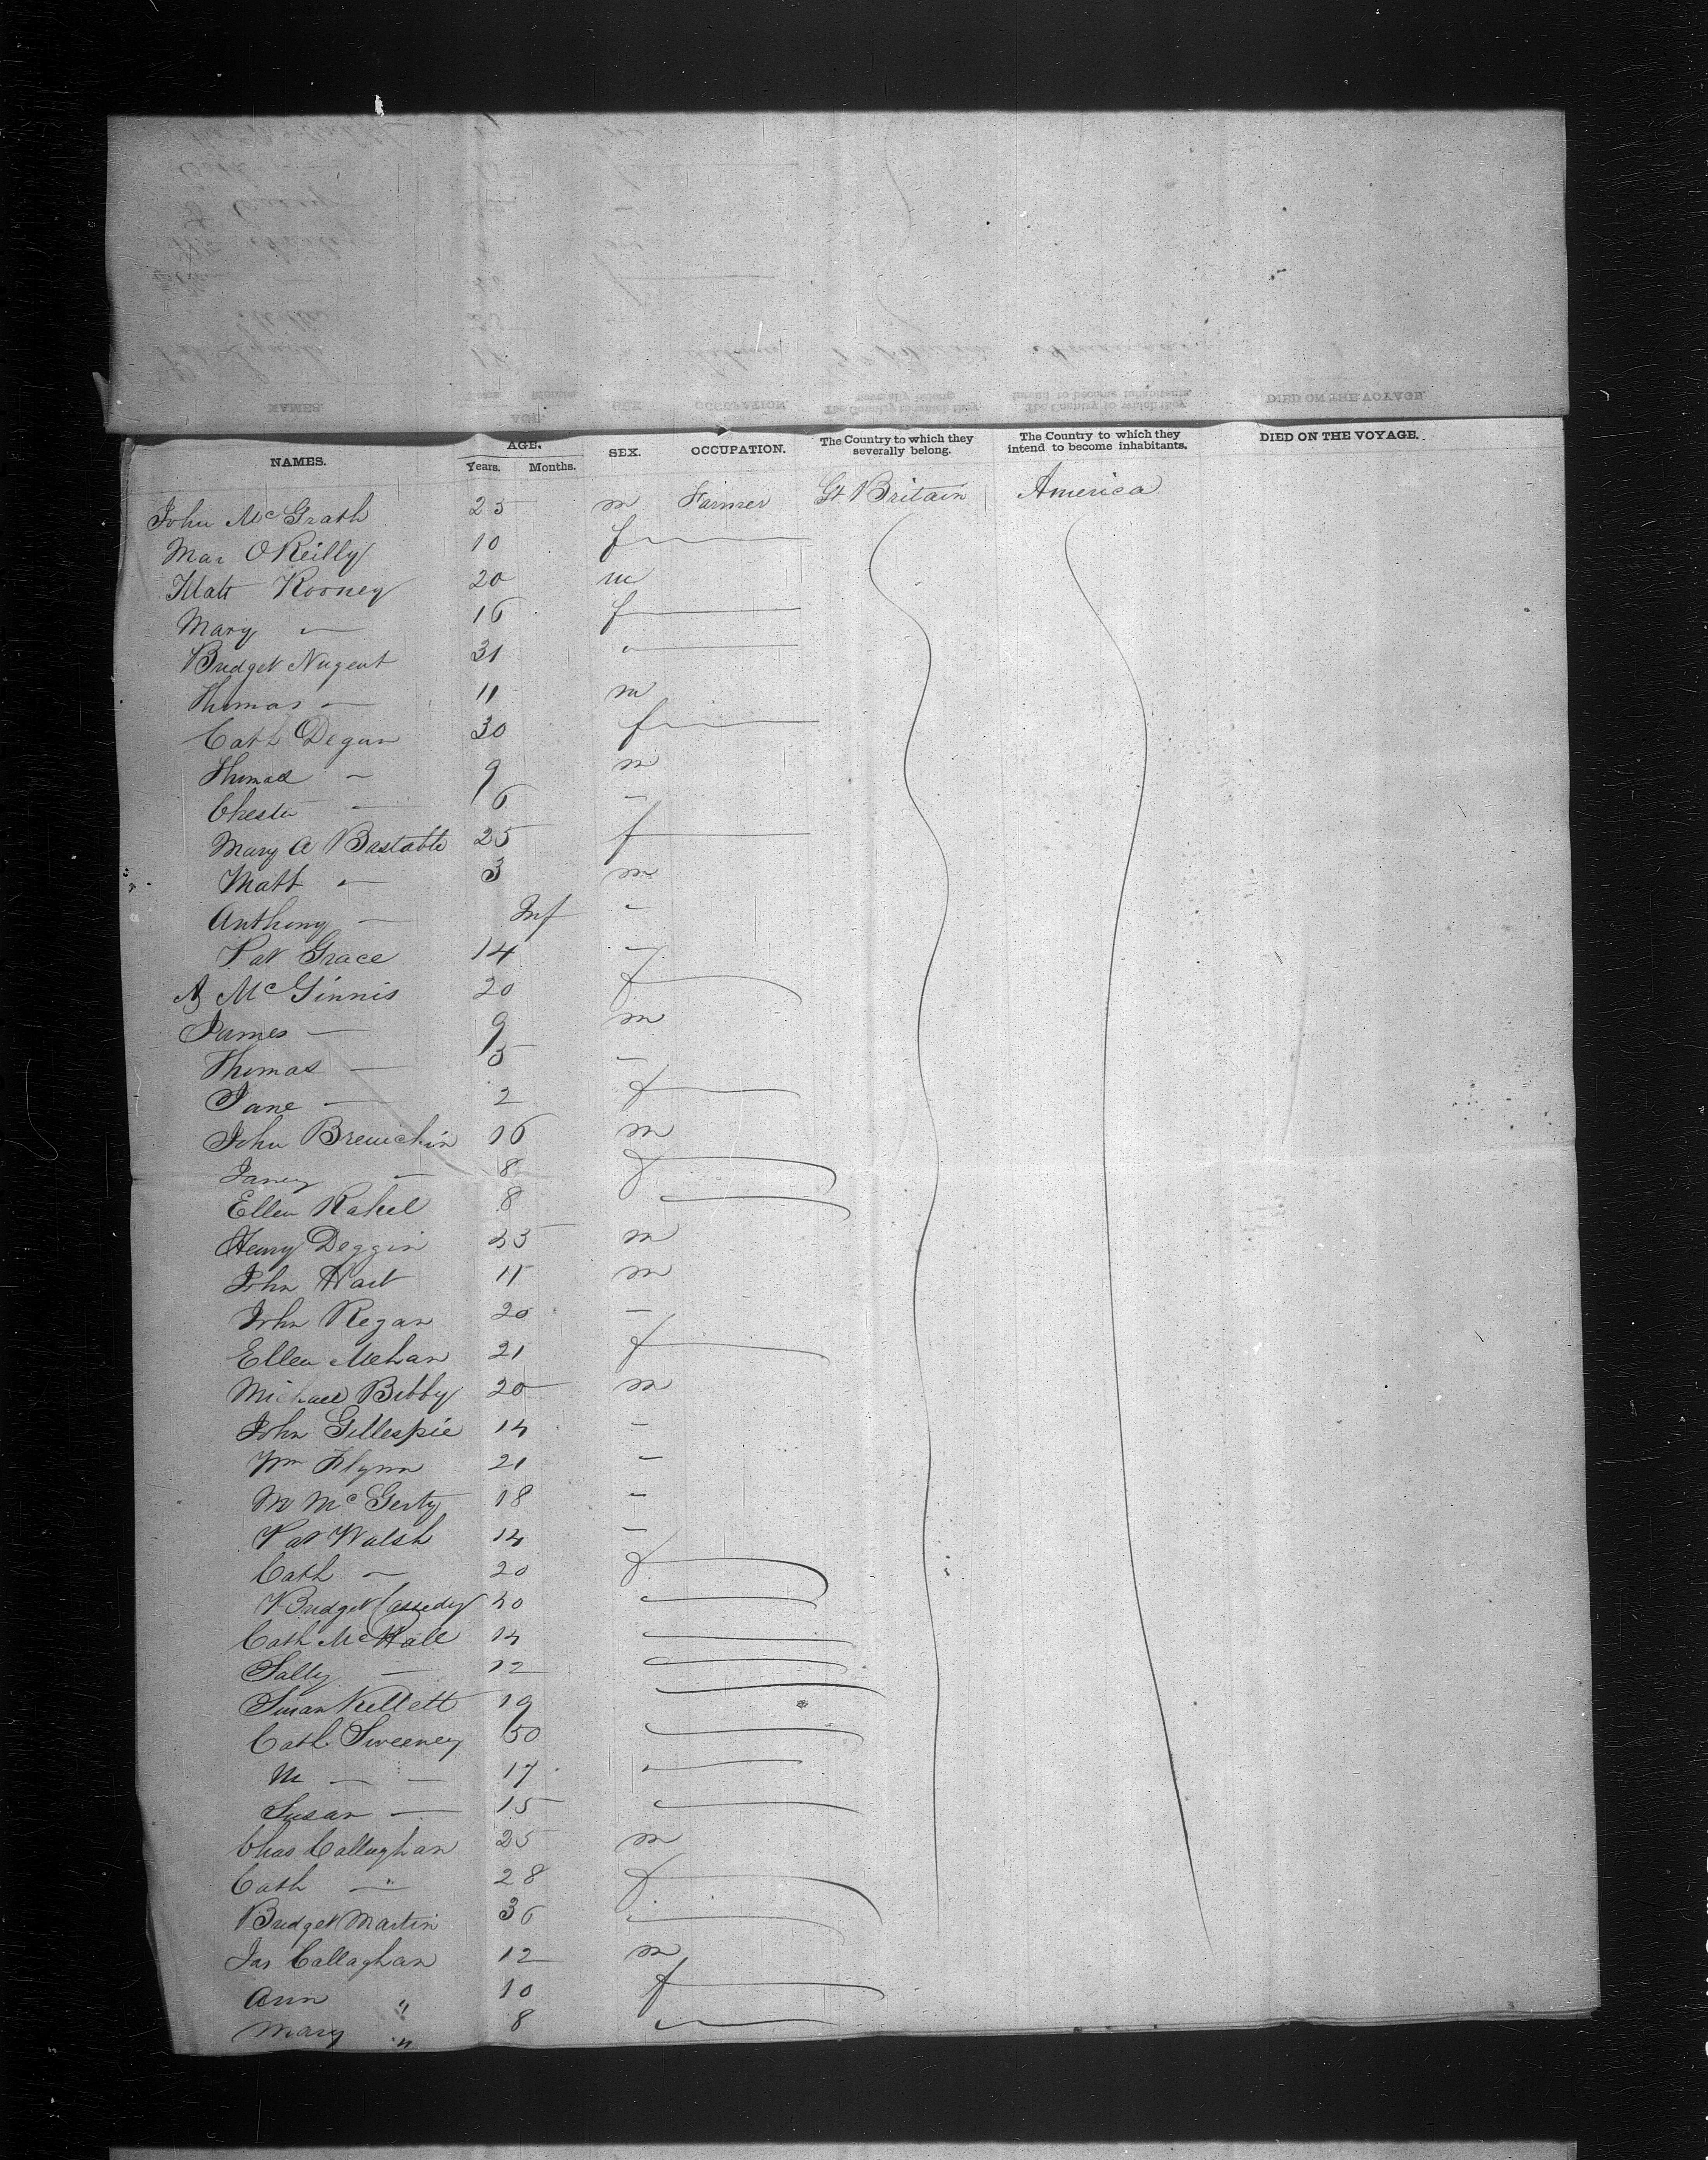 NAMES. AGE. Years. Months. SEX. OCCUPATION. The Country to which they severally belong. The Country to which they intend to become inhabitants. DIED ON THE VOYAGE.
John McGrath 25 m Farmer Gt Britain America
Mar OReilly 10 f
Matt Rooney 20 m
Mary — 16 f
Bridget Nugent 31 "
Thomas — 11 m
Cath Degan 30 f
Thomas — 9 m
Chester — 6 –
Mary A Bastable 25 f
Matt — 3 m
Anthony — Inf –
Pat Grace 14 –
McGinnis 20 f
James — 9 m
Thomas — 5 –
Jane — 2 f
John 16 m
— 8 f
Ellen 8
Henry Deggin 35 m
John Hart 11 m
John Regan 20 –
Ellen Mehan 21 f
Michael Bibby 20 m
John Gillespie 14 –
Wm Flynn 21 –
M McGerty 18 –
Pat Walsh 14 –
Cath — 20 f
Bridget Cassedy 40
Cath McHale 14
Sally — 12
Susan Kellett 19
Cath Sweeney 50
M — — 17 "
Susan — 15
Chas Callaghan 25 m
Cath — " 28 f
Bridget Martin 36 "
Jas Callaghan 12 m
Ann " 10 f
Mary " 8